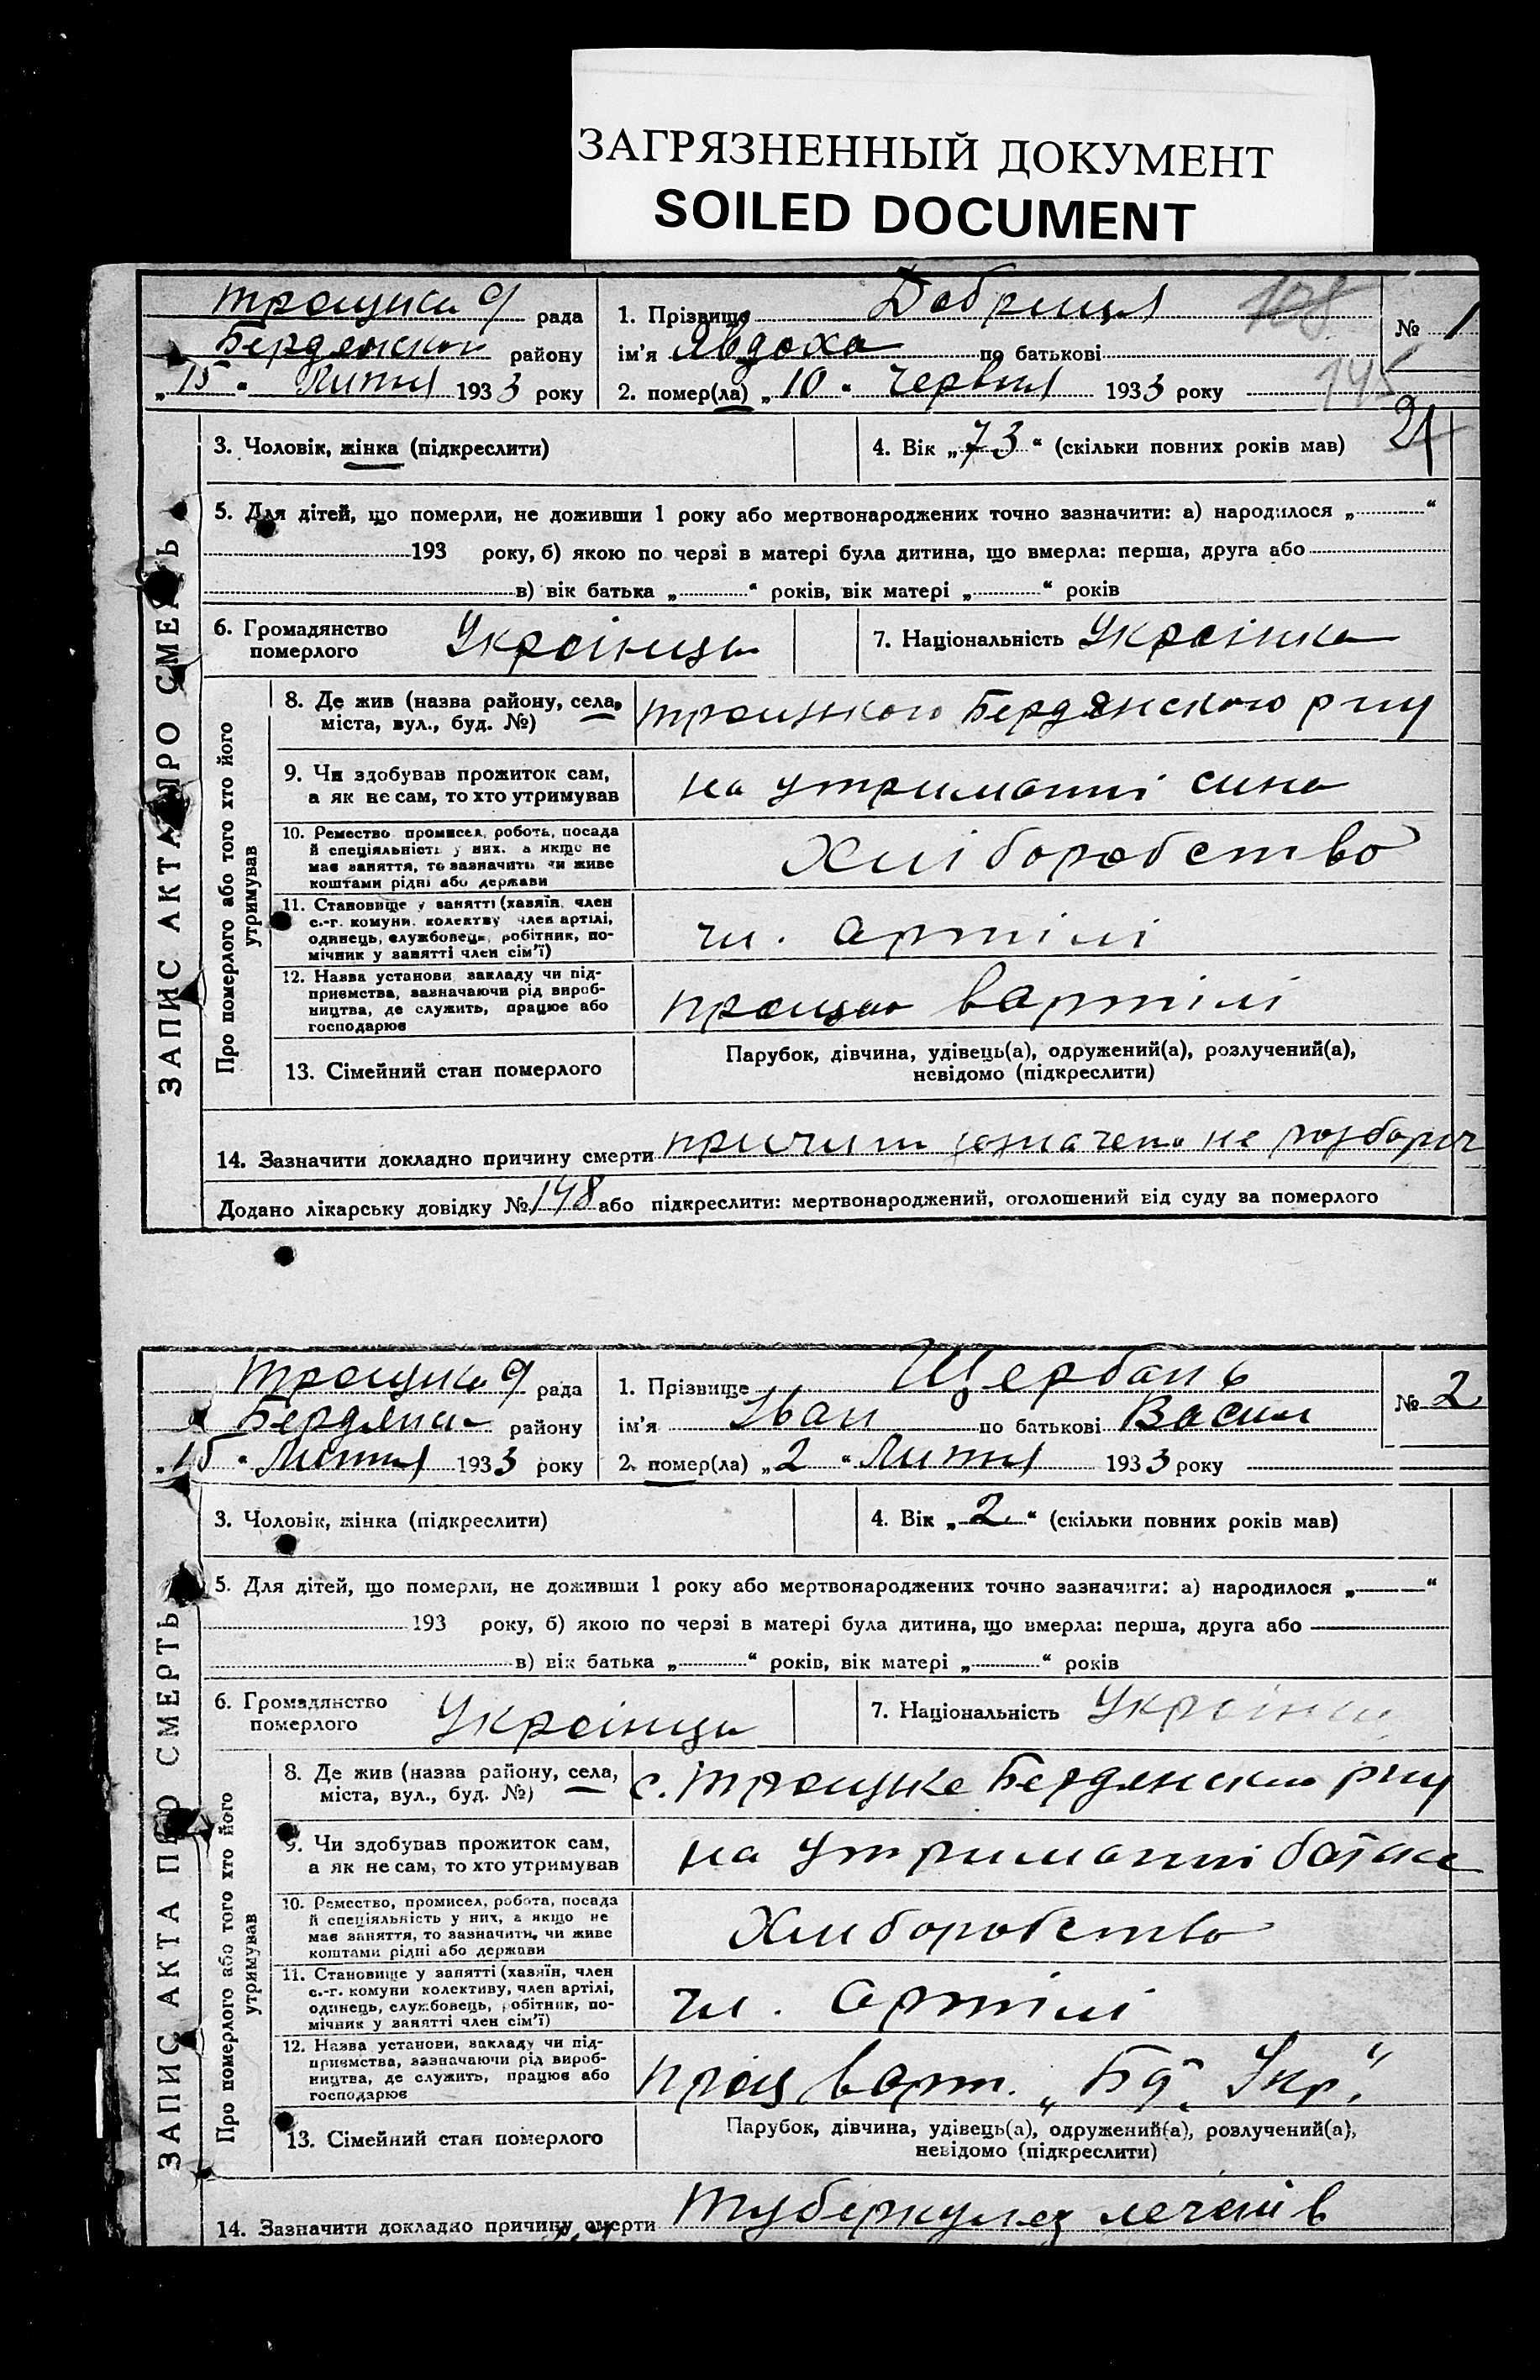 ЗАГРЯЗНЕННЫЙ ДОКУМЕНТ
SOILED DOCUMENT
рада
району
„15“ Лютня 1933 року
1. Прізвище Добриця
ім'я Явдоха по батькові
2. помер(ла) „10“ Червня 1933 року
№ 1
108
145
21
3. Чоловік, жінка (підкреслити)
4. Вік „73“ (скільки повних років мав)
5. Для дітей, що померли, не доживши 1 року або мертвонароджених точно зазначити: а) народилося „ “
193 року, б) якою по черзі в матері була дитина, що вмерла: перша, друга або
в) вік батька „ “ років, вік матері „ “ років
6. Громадянство
померлого
7. Національність Українка
ЗАПИС АКТА ПРО СМЕРТЬ
Про померлого або того хто його
утримував
8. Де жив (назва району, села,
міста, вул., буд. №)
Троицького Бердянского р-ну
9. Чи здобував прожиток сам,
а як не сам, то хто утримував
на утриманні сина
10. Ремество, промисел, робота, посада
й спеціяльність у них, а якщо не
має заняття, то зазначити чи живе
коштами рідні або держави
Хліборобство
11. Становище у занятті (хазяїн, член
с.-г. комуни, колективу, член артілі,
одинець, службовець, робітник, по-
мічник у занятті член сім'ї)
чл. артілі
12. Назва установи, закладу чи під-
приємства, зазначаючи рід вироб-
ництва, де служить, працює або
господарює
працює вартілі
13. Сімейний стан померлого
Парубок, дівчина, удівець(а), одружений(а), розлучений(а),
невідомо (підкреслити)
14. Зазначити докладно причину смерти не
Додано лікарську довідку № 148 або підкреслити: мертвонароджений, оголошений від суду за померлого
рада
району
„15“ Лютня 1933 року
1. Прізвище Щербань
ім'я Іван по батькові Васил
2. помер(ла) „2“ Лютня 1933 року
№ 2
3. Чоловік, жінка (підкреслити)
4. Вік „2“ (скільки повних років мав)
5. Для дітей, що померли, не доживши 1 року або мертвонароджених точно зазначити: а) народилося „ “
193 року, б) якою по черзі в матері була дитина, що вмерла: перша, друга або
в) вік батька „ “ років, вік матері „ “ років
6. Громадянство
померлого
7. Національність
ЗАПИС АКТА ПРО СМЕРТЬ
Про померлого або того хто його
утримував
8. Де жив (назва району, села,
міста, вул., буд. №)
с. Троицке р-ну
9. Чи здобував прожиток сам,
а як не сам, то хто утримував
на утриманні
10. Ремество, промисел, робота, посада
й спеціяльність у них, а якщо не
має заняття, то зазначити, чи живе
коштами рідні або держави
Хлиборобство
11. Становище у занятті (хазяїн, член
с.-г. комуни колективу, член артілі,
одинець, службовець, робітник, по-
мічник у занятті член сім'ї)
чл. артілі
12. Назва установи, закладу чи під-
приємства, зазначаючи рід вироб-
ництва, де служить, працює або
господарює
прац варт. Укр.“
13. Сімейний стан померлого
Парубок, дівчина, удівець(а), одружений(а), розлучений(а),
невідомо (підкреслити)
14. Зазначити докладно причину смерти Туберкулез легенів